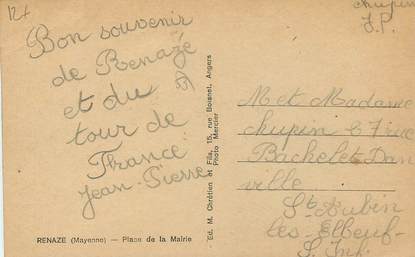 12f
Bon souvenir
de Renazé
et du
tour de
France
Jean-Pierre
RENAZE (Mayenne) — Place de la Mairie
Ed. M. Chrétien et Fils, 15, rue Boisnet, Angers
Photo Mercier
chupin
J.P.
M et Madame
chupin 67 rue
Bachelet Dan
ville
St Aubin
les-Elbeuf-
S. Inf.